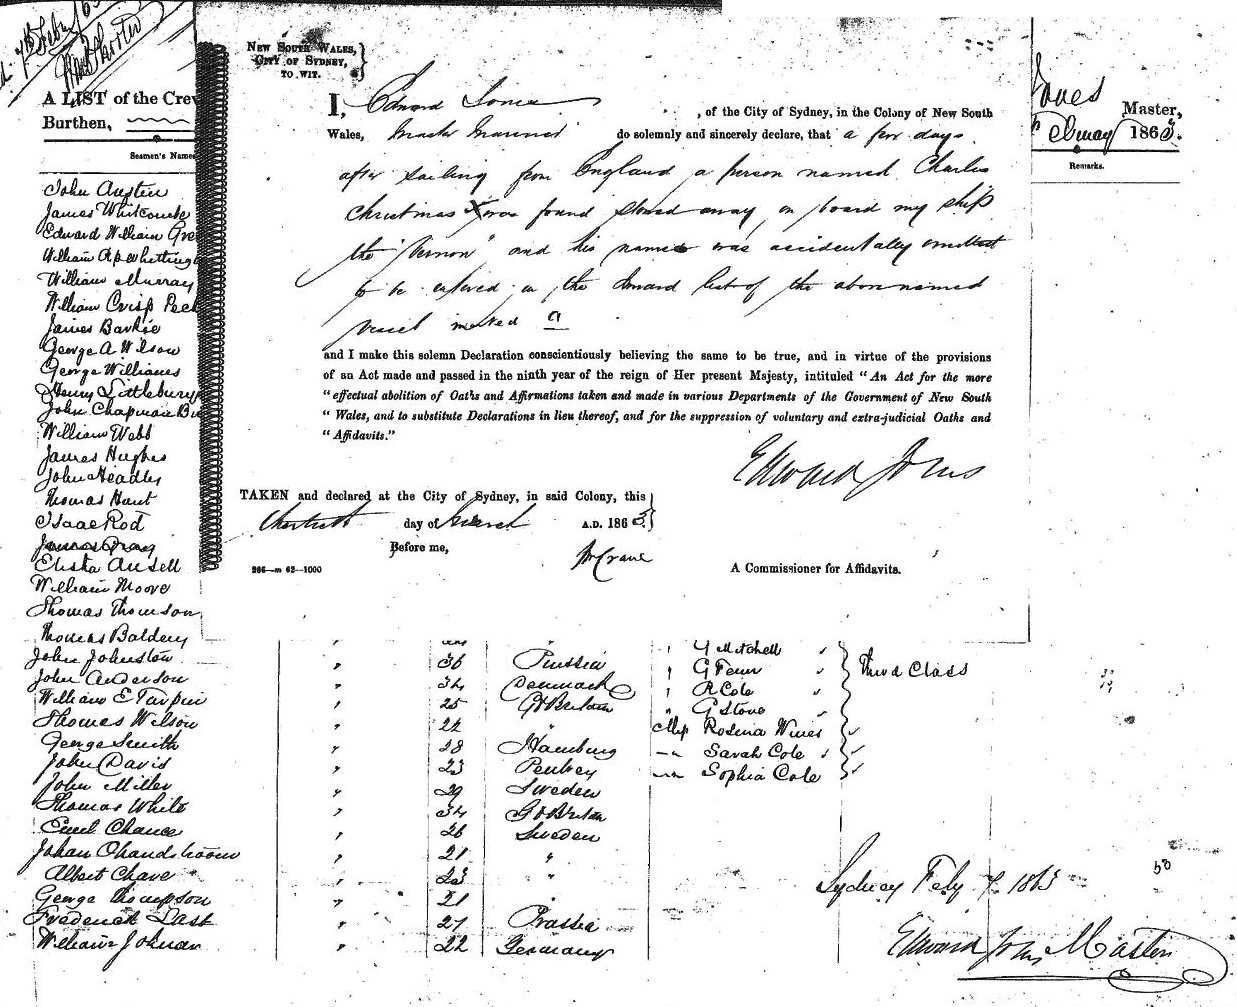 7th Feby
A LIST of the Crew
Burthen,
Seamen's Names
John Austin
James Whitcombe
Edward William Gre
William Ap Whitting
William Murray
William Crisp Peck
James Barkie
George A Wilson
George Williams
Henry Littlebury
John Chapman Bu
William Webb
James Hughes
John Headley
Thomas Hunt
Isaac Rod
James Gray
Elisha Ansell
William Moore
Thomas Thomson
Thomas Baldery
John Johnston
John Anderson
William E Tarpin
Thomas Wilson
George Smith
John Davis
John Miller
Thomas White
Emil Chance
Johan
Albert Chave
George Thompson
Frederick Last
William Johnan
NEW SOUTH WALES,
CITY OF SYDNEY,
TO WIT.
I, Edward Jones, of the City of Sydney, in the Colony of New South
Wales, Master Mariner do solemnly and sincerely declare, that a few days
after sailing from England a person named Charles
Christmas was found stowed away on board my ship
the "Vernon" and his name was accidentally omitted
to be entered in the Inward list of the above named
vessel marked a
and I make this solemn Declaration conscientiously believing the same to be true, and in virtue of the provisions
of an Act made and passed in the ninth year of the reign of Her present Majesty, intituled "An Act for the more
"effectual abolition of Oaths and Affirmations taken and made in various Departments of the Government of New South
"Wales, and to substitute Declarations in lieu thereof, and for the suppression of voluntary and extra-judicial Oaths and
"Affidavits."
Edward Jones
TAKEN and declared at the City of Sydney, in said Colony, this
day of March A.D. 1863
Before me,
286—m 62—1000
A Commissioner for Affidavits.
Jones Master,
Febuary 1863.
Remarks.
" " G Mitchell "
" 36 Prussia " G Fenn " Third Class
" 34 Denmark " R Cole "
" 25 Gt Britain " G Stone "
" 22 " Rosina Wines
" 28 Hamburg Sarah Cole
" 23 Sophia Cole
" 29 Sweden
" 34 Gt Britan
" 26 Sweden
" 21 "
" 23 "
" 21
" 27 Prassia
" 22 Germany
Sydney Feby 7 1863
50
Edward Jones Master